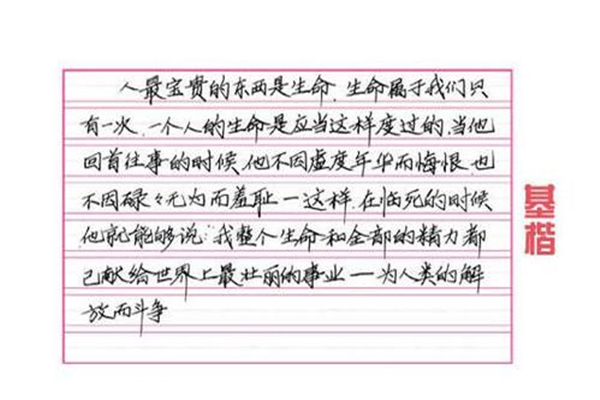 人最宝贵的东西是生命.生命属于我们只
有一次.一个人的生命是应当这样度过的.当他
回首往事的时候.他不因虚度年华而悔恨.也
不因碌々无为而羞耻—这样.在临死的时候
他就能够说:我整个生命和全部的精力都
己献给世界上最壮丽的事业—为人类的解
放而斗争
基楷